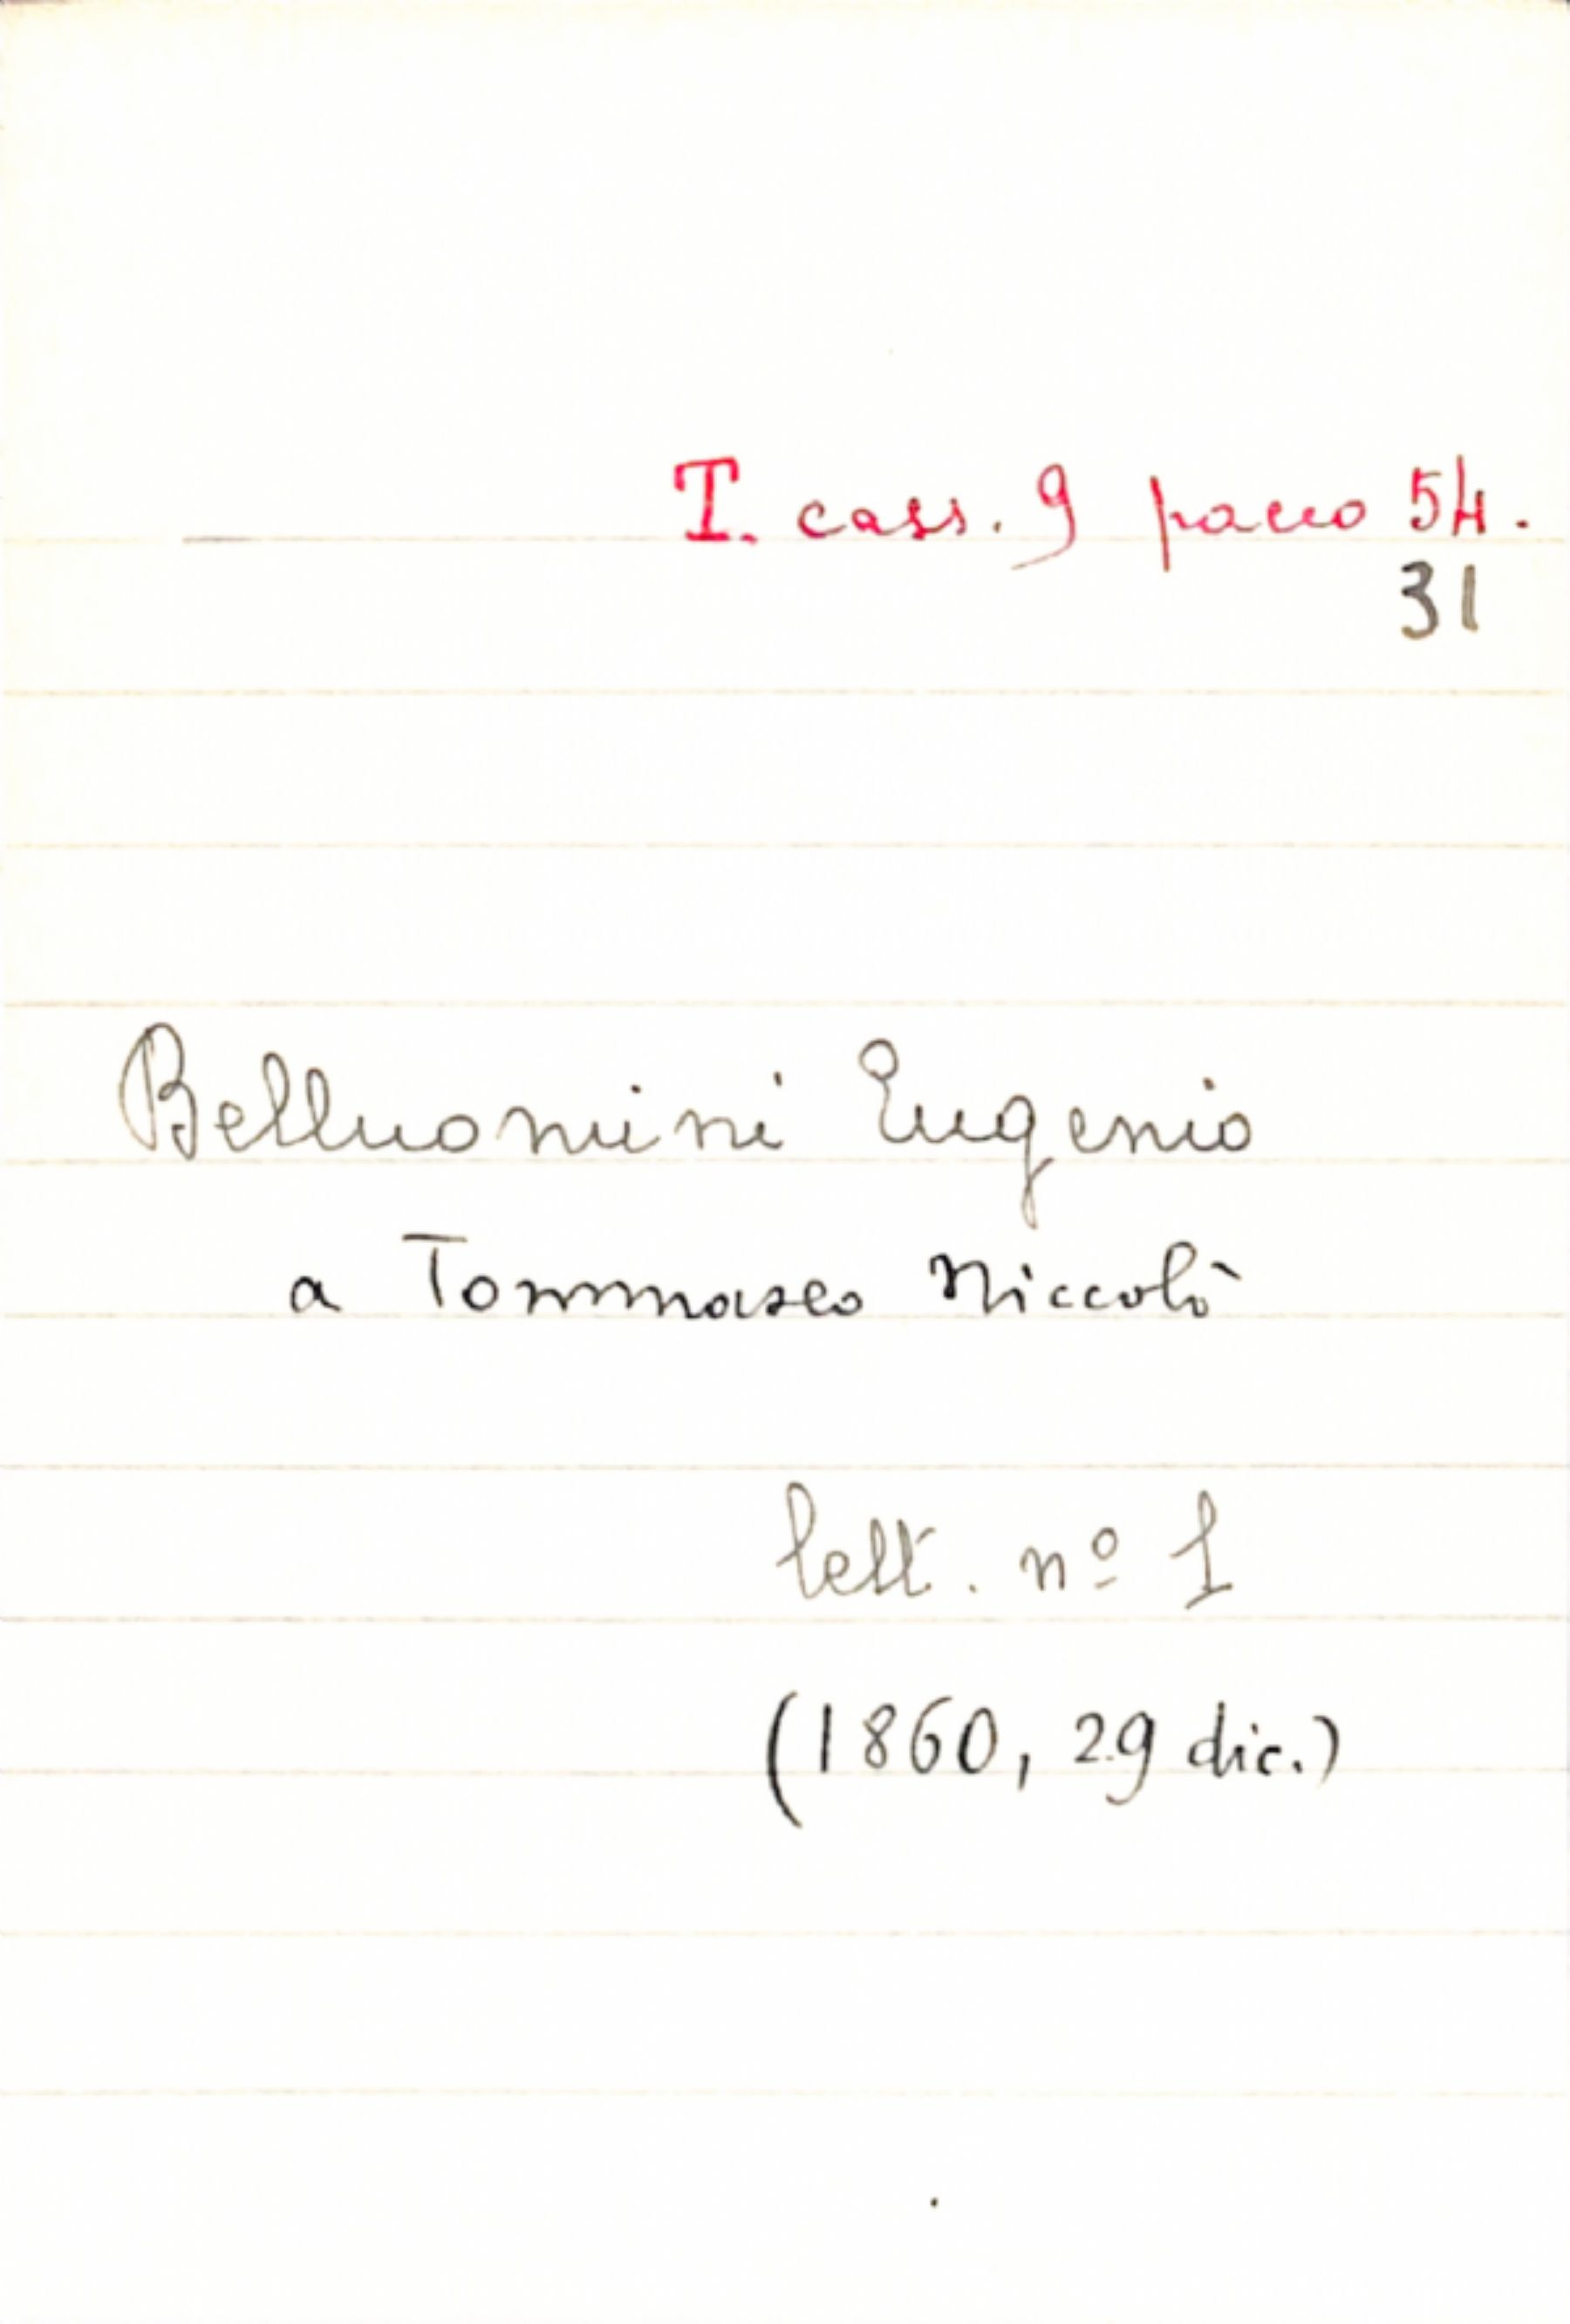 T. cass. 9 pacco 54.
31
Belluomini Eugenio
a Tommaseo Niccolò
lett. nº 1
(1860, 29 dic.)